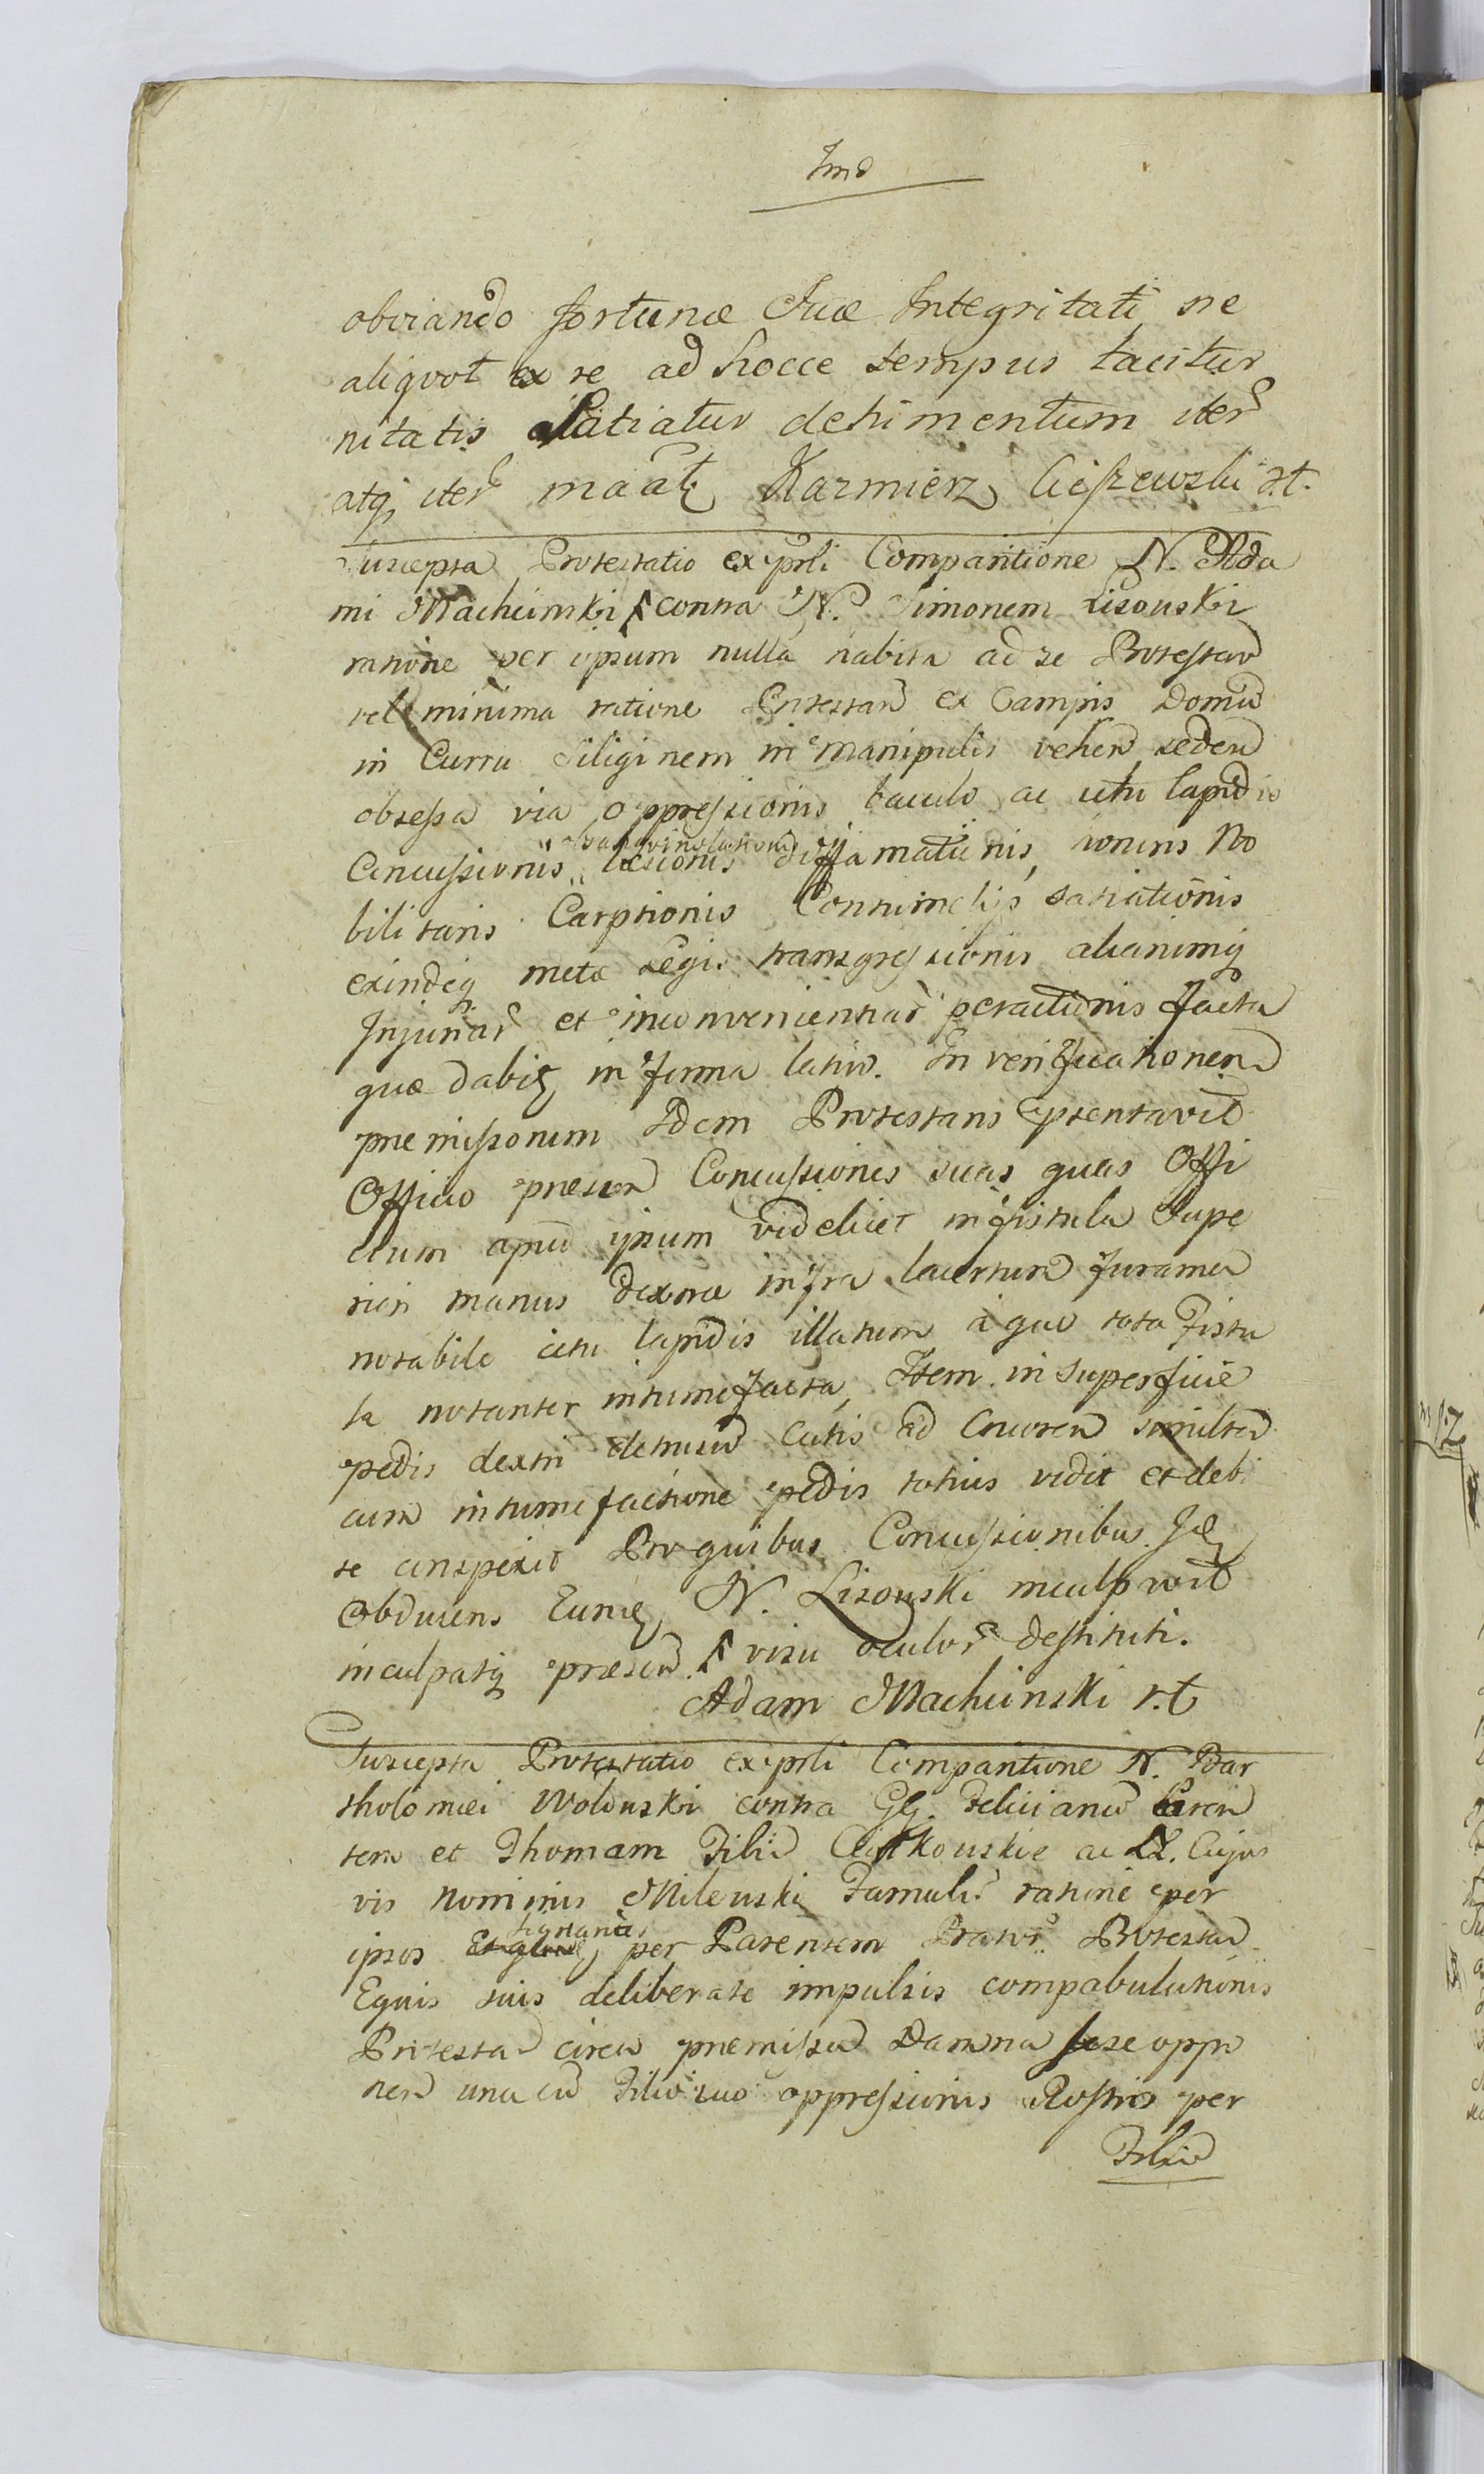 Imd
obviando fortunæ suæ Integritati ne
aliqvot ex re ad hocce tempus tacitur
nitatis Patiatur detrimentum iter
atq iter maãt Kazmierz Cieszewski rt.
Suscepta Protestatio ex prli Comparitione N. Ada
mi Machcinski contra N. Simonem Lisouski
ratione per ipsum nulla habita ad se Protestan
vel minima ratione Protestan ex Campis Domu
in Curru Siliginem in manipulis vehen seden
obsessa via oppressionis baculo ac ictu lapidis
Concussionis læsionis diffamationis, honoris No
bilitaris Carptionis Contumelijs satiationis
exindeq metæ Legis transgressionis aliarumq
Injuriar et inconvenientiar peractionis facta
quæ dabit in forma latiori. In verificationem
præmissorum Idem Protestans præsentavit
Officio præsen Concussiones suas quas Offi
cium apud ipsum videlicet in fistula Supe
riori manus dextræ infra lacertum
notabile ictu lapidis illatum a quo tota Fistu
la notanter intumefacta, Item in superficie
pedis dextri detrusio Cutis ad Cruorem simulter
cum intumefactione pedis totius vidit et debi
te conspexit Pro quibus Concussionibus
Obducens Eund N. Lisouski inculpavit
inculpatq præsen visu oculor destituti.
Adam Machcinski r.t
Suscepta Protestatio ex prli Comparitione N. Bar
tholomæi Wolouski contra GG. Felicianu Paren
tem et Thomam Filiu ac LL. Cujus
vis nominis Milewski Famulu ratione per
ipsos signanter per Parentem Prator Protestan
Equis suis deliberate impulsis compabulationis
Protestan circa præmissa Damna sese oppo
nen una cu Filio suo oppressionis Rostris per
Filiu